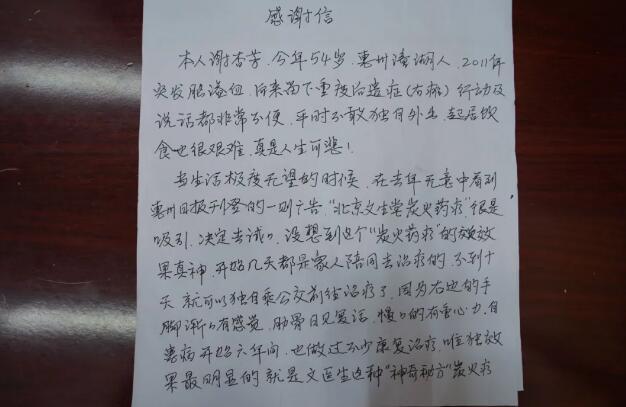 感谢信
本人谢杏芳，今年54岁，惠州潼湖人，2011年
突发脑溢血，后来留下重度后遗症(右瘫)行动及
说话都非常不便，平时不敢独自外出，起居饮
食也很艰难，真是人生可悲！
当生活极度无望的时候，在去年无意中看到
惠州日报刊登的一则广告，"北京文生堂炭火药疗"很是
吸引，决定去试试，没想到这个"炭火药疗"的效
果真神，开始几天都是家人陪同去治疗的，不到十
天就可以独自乘公交前往治疗了，因为右边的手
脚渐渐有感觉，肋骨日见复活，慢慢的有重心力，自
患病开始六年间，也做过不少康复治疗，唯独效
果最明显的就是文医生这种"神奇秘方"炭火药疗